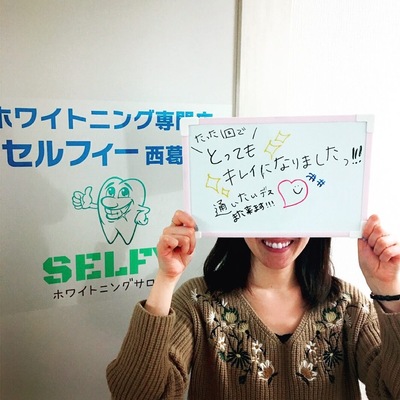 ホワイトニング専門店
セルフィー西葛
SELFY
ホワイトニングサロ
たった1回で
とっても
キレイになりましたっ!!!
通いたいデス